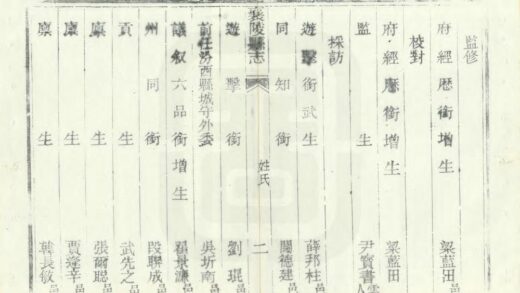 監修
府經歷銜增生 梁藍田 邑
校對
府經歷銜增生 梁藍田 邑
監生 尹寶書
採訪
遊擊銜武生 薛邦柱 邑
同知銜 關德建 邑
襄陵縣志 姓氏 二
遊擊銜 劉琨 邑
前任汾西縣城守外委 吳圻南 邑
議敘六品銜增生 翟景濂 邑
州同銜 段聯成 邑
貢生 武先之 邑
廩生 張爾聰 邑
廩生 賈逢辛 邑
廩生 韓長敘 邑